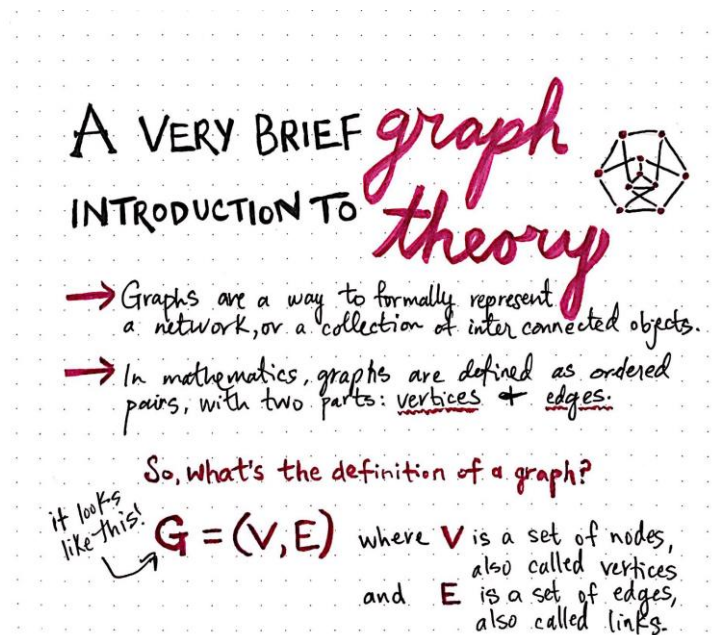 A VERY BRIEF graph
INTRODUCTION TO theory
→ Graphs are a way to formally represent
a network, or a collection of interconnected objects.
→ In mathematics, graphs are defined as ordered
pairs, with two parts: vertices + edges.
So, what's the definition of a graph?
it looks
like this!
G = (V, E) where V is a set of nodes,
also called vertices
and E is a set of edges,
also called links.